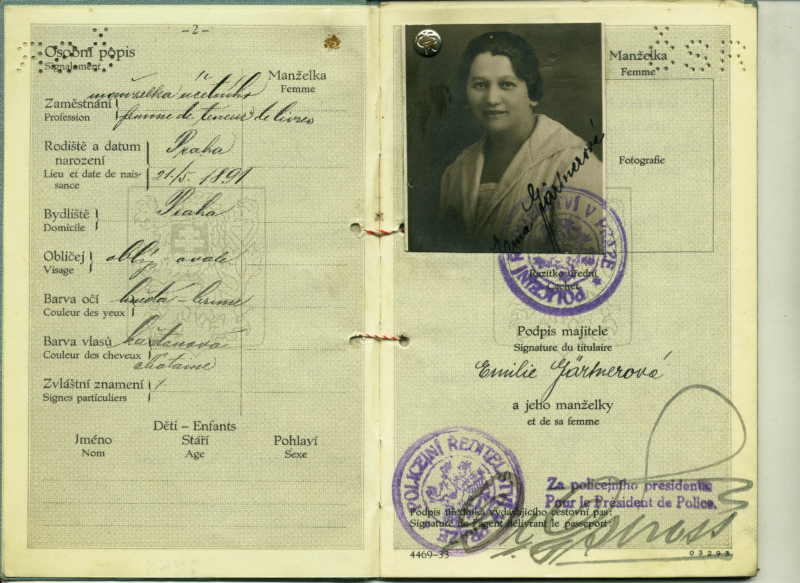 -2-
Osobní popis
Signalement
Manželka
Femme
manželka účetního
Zaměstnání
Profession
femme de teneur de livres
Rodiště a datum
narození
Lieu et date de nais-
sance
Praha
21/5. 1891
Bydliště
Domicile
Praha
Obličej
Visage
obl. - ovale
Barva očí
Couleur des yeux
hnědá - brune
Barva vlasů
Couleur des cheveux
kaštanová
chataine
Zvláštní znamení
Signes particuliers
Děti - Enfants
Jméno
Nom
Stáří
Age
Pohlaví
Sexe
Manželka
Femme
Fotografie
Gärtnerová
POLICEJNÍ ŘEDITELSTVÍ V PRAZE
Razítko úřední
Cachet
Podpis majitele
Signature du titulaire
Emilie Gärtnerová
a jeho manželky
et de sa femme
POLICEJNÍ ŘEDITELSTVÍ V PRAZE
Za policejního presidenta:
Pour le Président de Police,
Podpis úředníka vydávajícího cestovní pas:
Signature de l'agent délivrant le passeport
4469-33
03293